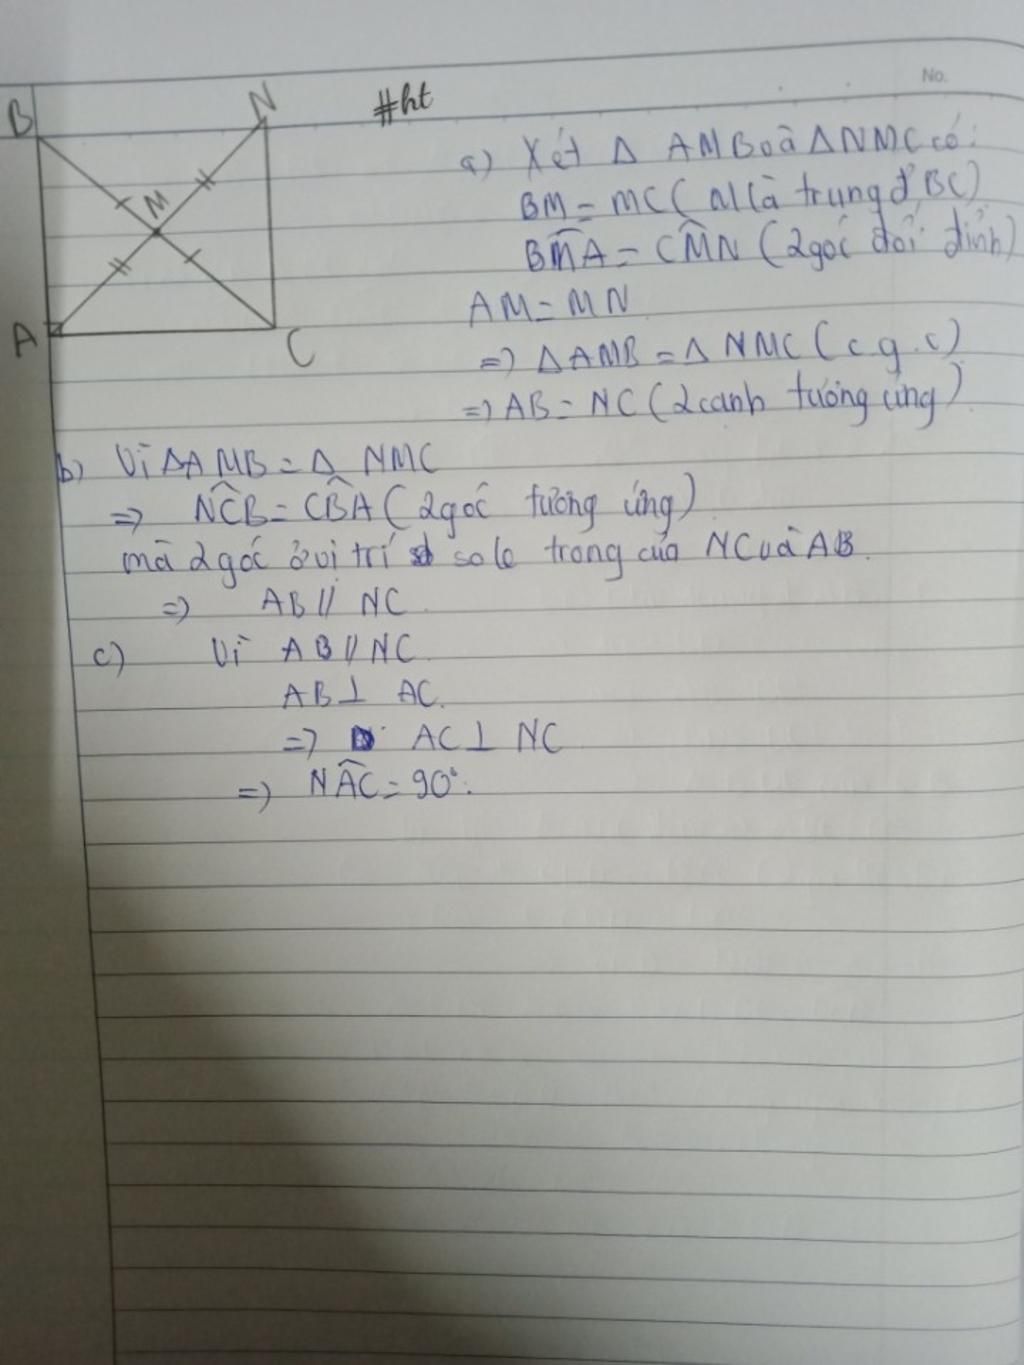 No.
#ht
B
N
M
A
C
a) Xét Δ AMB và Δ NMC có:
BM = MC ( M là trung đ' BC)
BM̂A = CM̂N ( 2 góc đối đỉnh)
AM = MN
=> Δ AMB = Δ NMC ( c.g.c)
=> AB = NC ( 2 cạnh tương ứng)
b) Vì Δ AMB = Δ NMC
=> NĈB = CB̂A ( 2 góc tương ứng)
mà 2 góc ở vị trí so le trong của NC và AB.
=> AB // NC
c) Vì AB // NC
AB ⊥ AC.
=> AC ⊥ NC
=> NÂC = 90°.